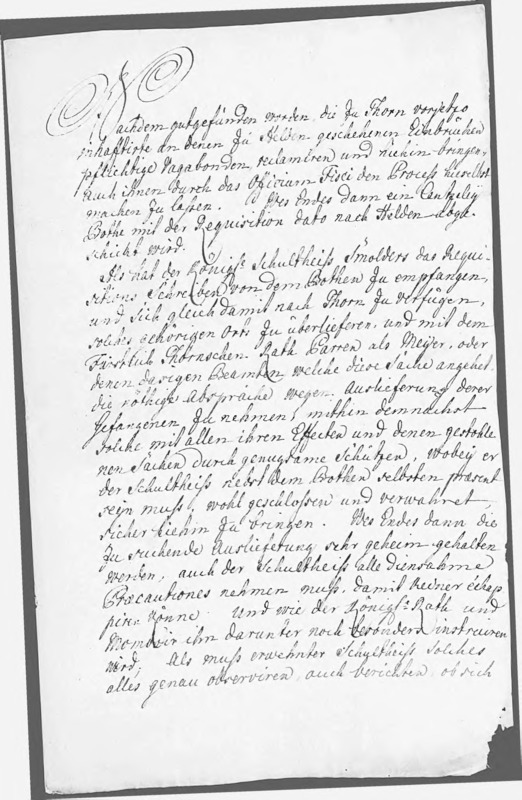 Nachdem gutgefunden worden, die zu Thorn vorjetzo
inhafftirte an denen zu Helden geschehenen Einbrüchen
pflichtige Vagabonden reclamiren und hiehin bringen,
auch ihnen durch das Officium Fisci den Process hieselbst
machen zu lassen. Des Endes dann ein Cantzeley
Bothe mit der Requisition dato nach Helden abge-
schickt wird.
Als hat der Königl: Schultheiss Smolders das Requi-
sitions Schreiben von dem Bothen zu empfangen,
und sich gleich damit nach Thorn zu verfügen,
solches gehörigen Orts zu überlieferen, und mit dem
Fürstlich Thornschen Rath Parren als Meyer, oder
denen dasigen Beamten welche diese Sache angehet
die nöthige Absprache wegen Auslieferung derer
Gefangenen zu nehmen, mithin demnächst
solche mit allen ihren Effecten und denen gestohle-
nen Sachen durch genugsame Schützen, wobey er
der Schultheiss nebst dem Bothen selbsten præsent
seyn muss, wohl geschlossen und verwahret
sicher hiehin zu bringen. Des Endes dann die
zu suchende Auslieferung sehr geheim gehalten
werden, auch der Schultheiss alle diensahme
Præcautiones nehmen muss, damit keiner échap-
piren könne. Und wie der Königl: Rath und
Momboir ihn darunter noch besonders instruiren
wird, Als muss erwehnter Schultheiss solches
alles genau observiren, auch berichten, ob sich